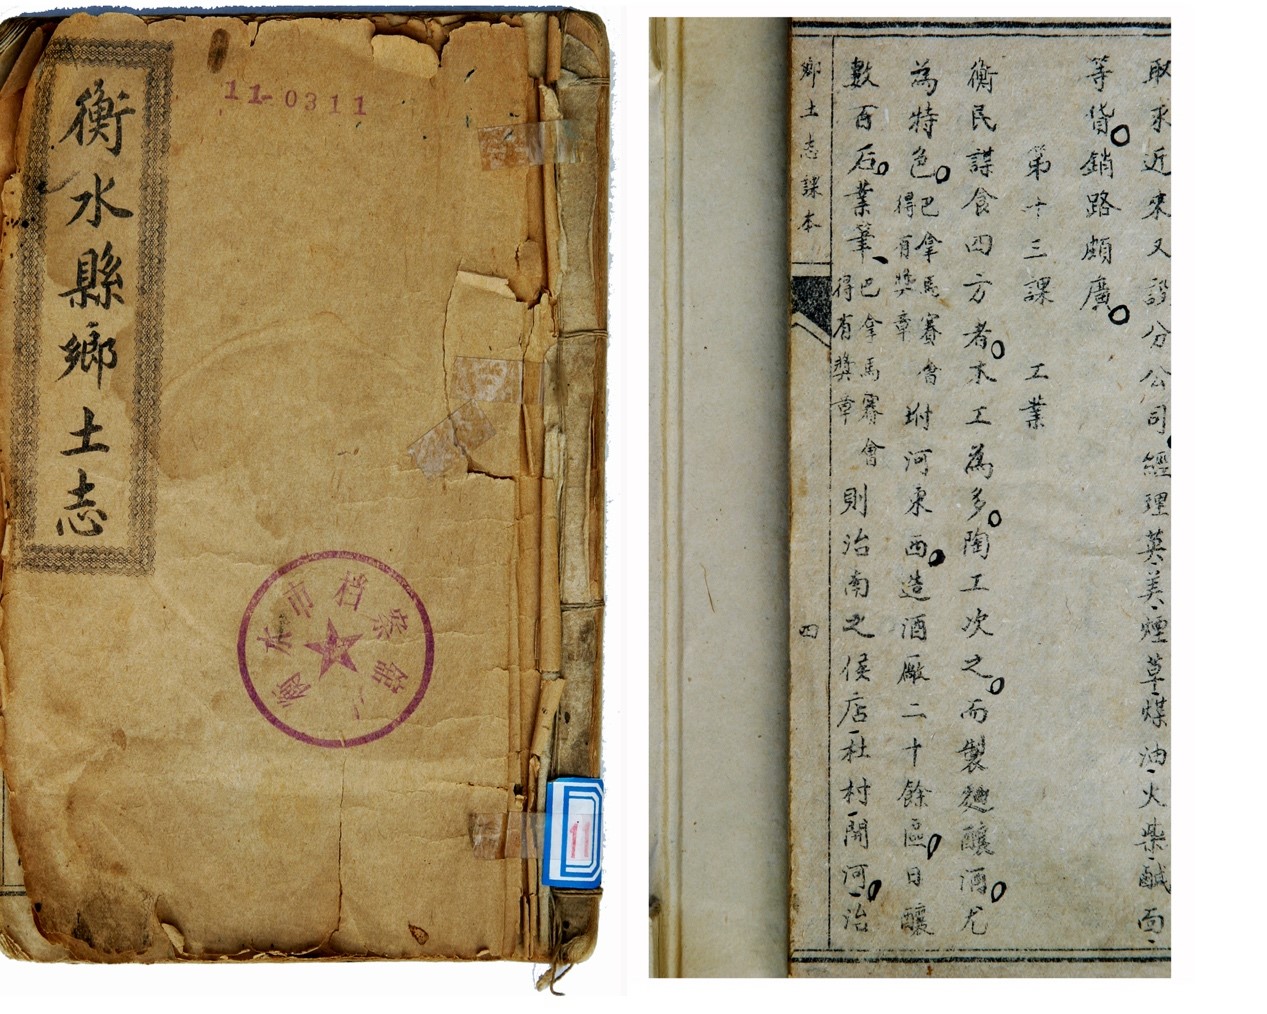 衡水縣鄉土志
11-0311
衡水市档案馆
11
取求近來又設分公司經理英美煙草煤油火柴鹹面
等貨銷路頗廣
第十三課 工業
衡民謀食四方者木工為多陶工次之而製麯釀酒尤
為特色巴拿馬賽會得有獎章坿河東西造酒廠二十餘區日釀
數百石業筆巴拿馬賽會得有獎章則治南之侯店杜村開河治
鄉土志課本
四